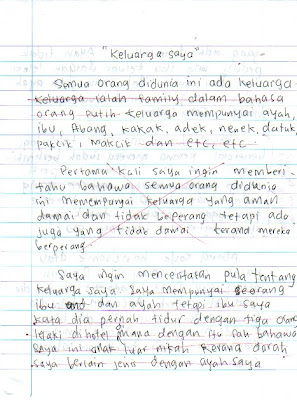 "Keluarga saya"
Semua orang didunia ini ada keluarga
keluarga ialah family dalam bahasa
orang putih. Keluarga mempunyai ayah,
ibu, Abang, kakak, adek, nenek, datuk,
pakcik, Makcik dan etc, etc
Pertama kali saya ingin memberi
tahu bahawa semua orang didunia
ini memempunyai keluarga yang aman
damai dan tidak beperang tetapi ada
juga yang tidak damai kerana mereka
berperang.
Saya ingin menceritakan pula tentang
keluarga saya. Saya mempunyai seorang
ibu dan ayah tetapi ibu saya
kata dia pernah tidur dengan tiga orang
lelaki dihotel mana dengan itu sah bahawa
saya ini anak luar nikah kerana darah
saya berlain jenis dengan ayah saya